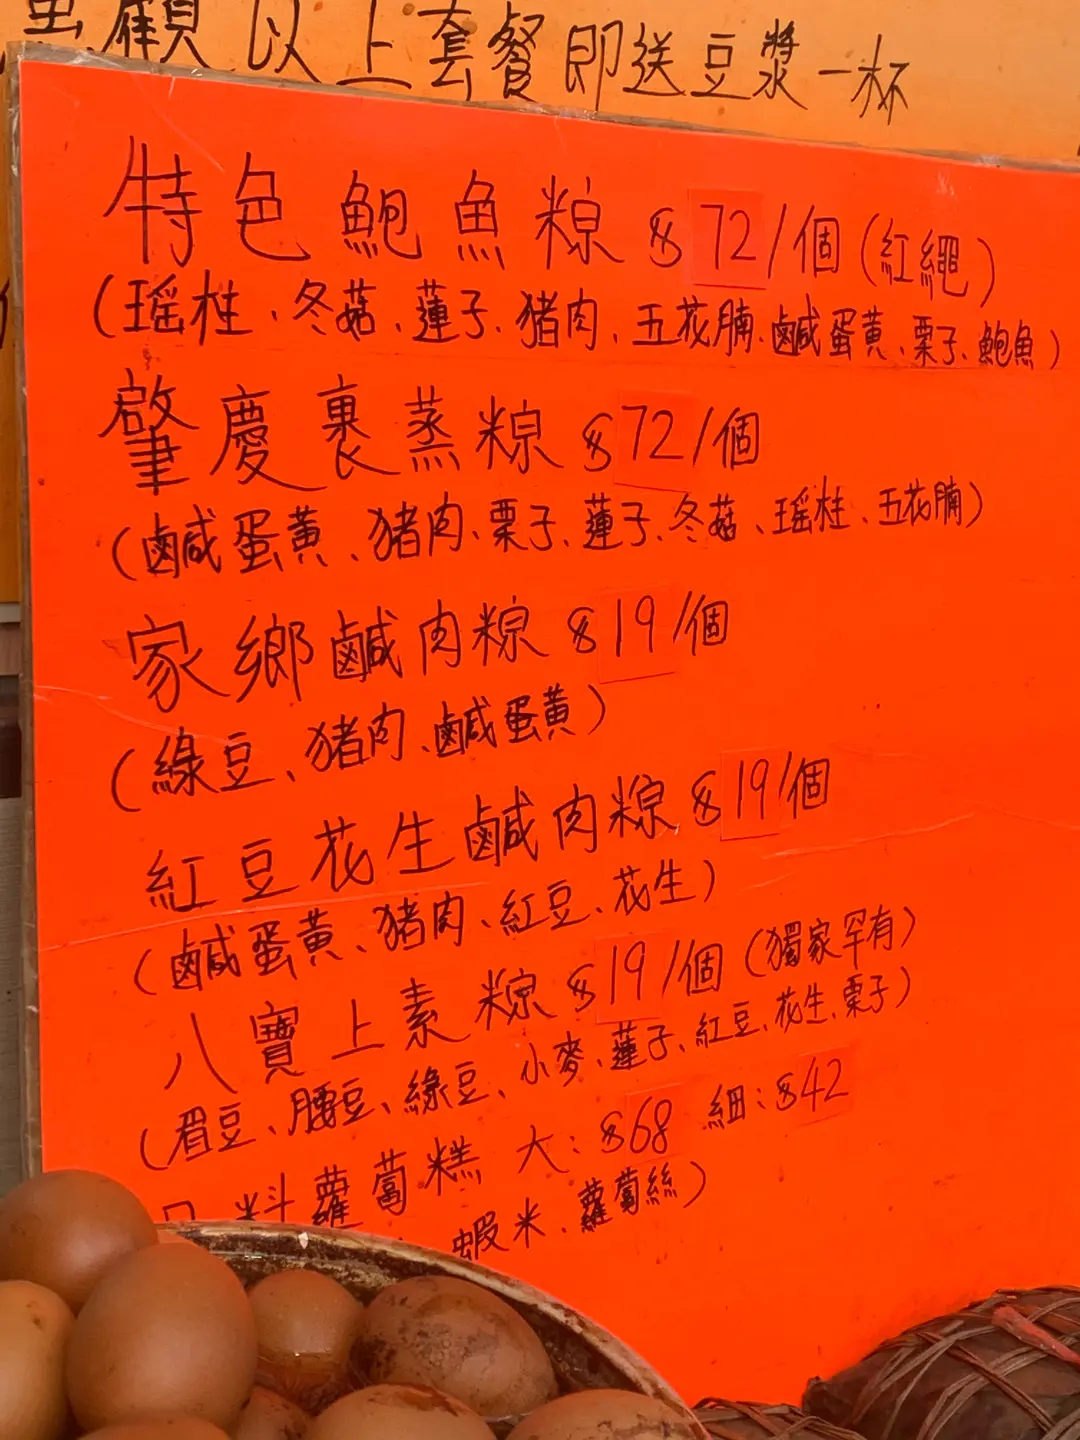 顧以上套餐即送豆漿一杯
特色鮑魚粽 $72/個(紅繩)
(瑶柱、冬菇、蓮子、猪肉、五花腩、鹹蛋黃、栗子、鮑魚)
肇慶裹蒸粽 $72/個
(鹹蛋黃、猪肉、栗子、蓮子、冬菇、瑶柱、五花腩)
家鄉鹹肉粽 $19/個
(綠豆、猪肉、鹹蛋黃)
紅豆花生鹹肉粽 $19/個
(鹹蛋黃、猪肉、紅豆、花生)
八寶上素粽 $19/個(獨家罕有)
(眉豆、腰豆、綠豆、小麥、蓮子、紅豆、花生、栗子)
料蘿蔔糕 大:$68 細:$42
蝦米、蘿蔔絲)